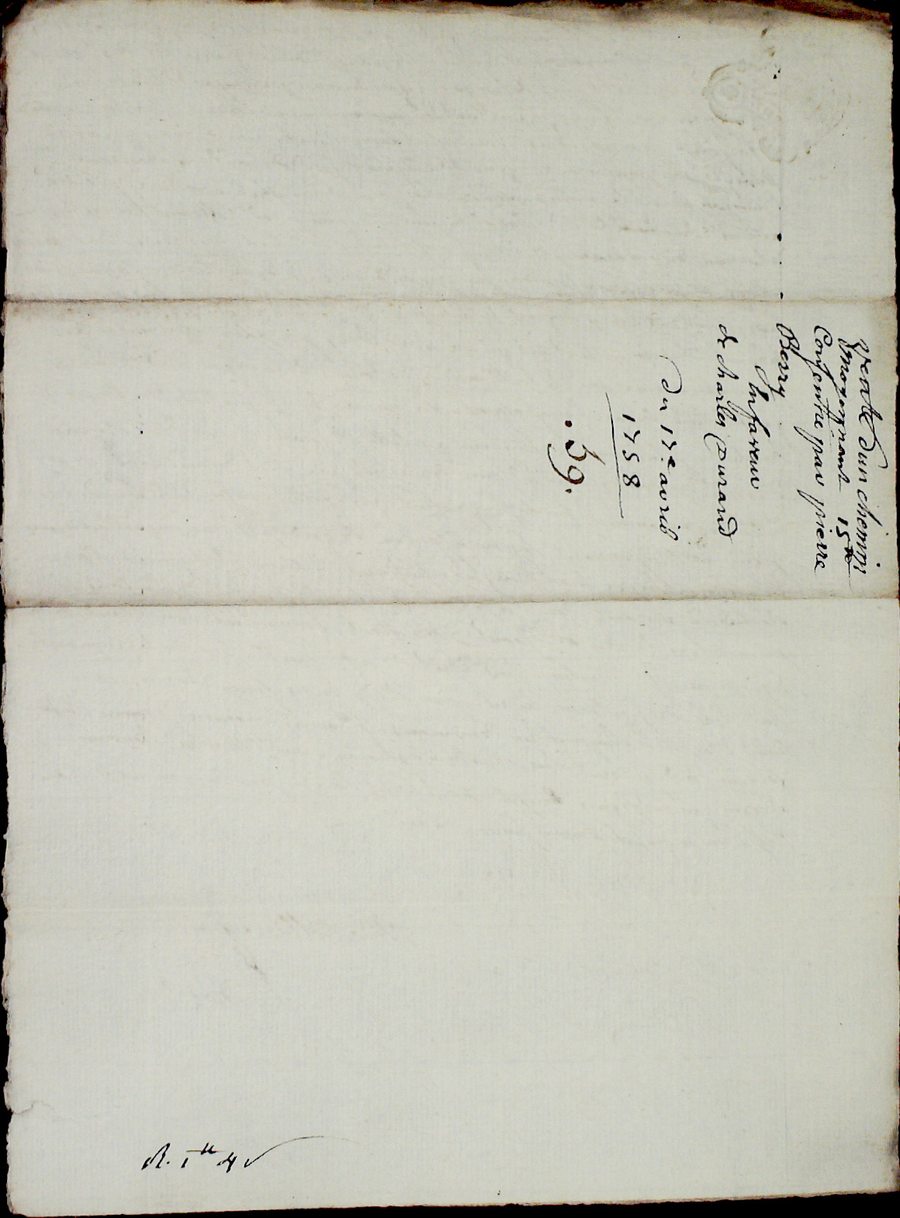 vente dun chemin
moyennant 15 ₶
Consentie par pierre
Berry
En faveur
de charles Durand
Du 17e avril
1758
.39.
R. 1 ₶ 4 s